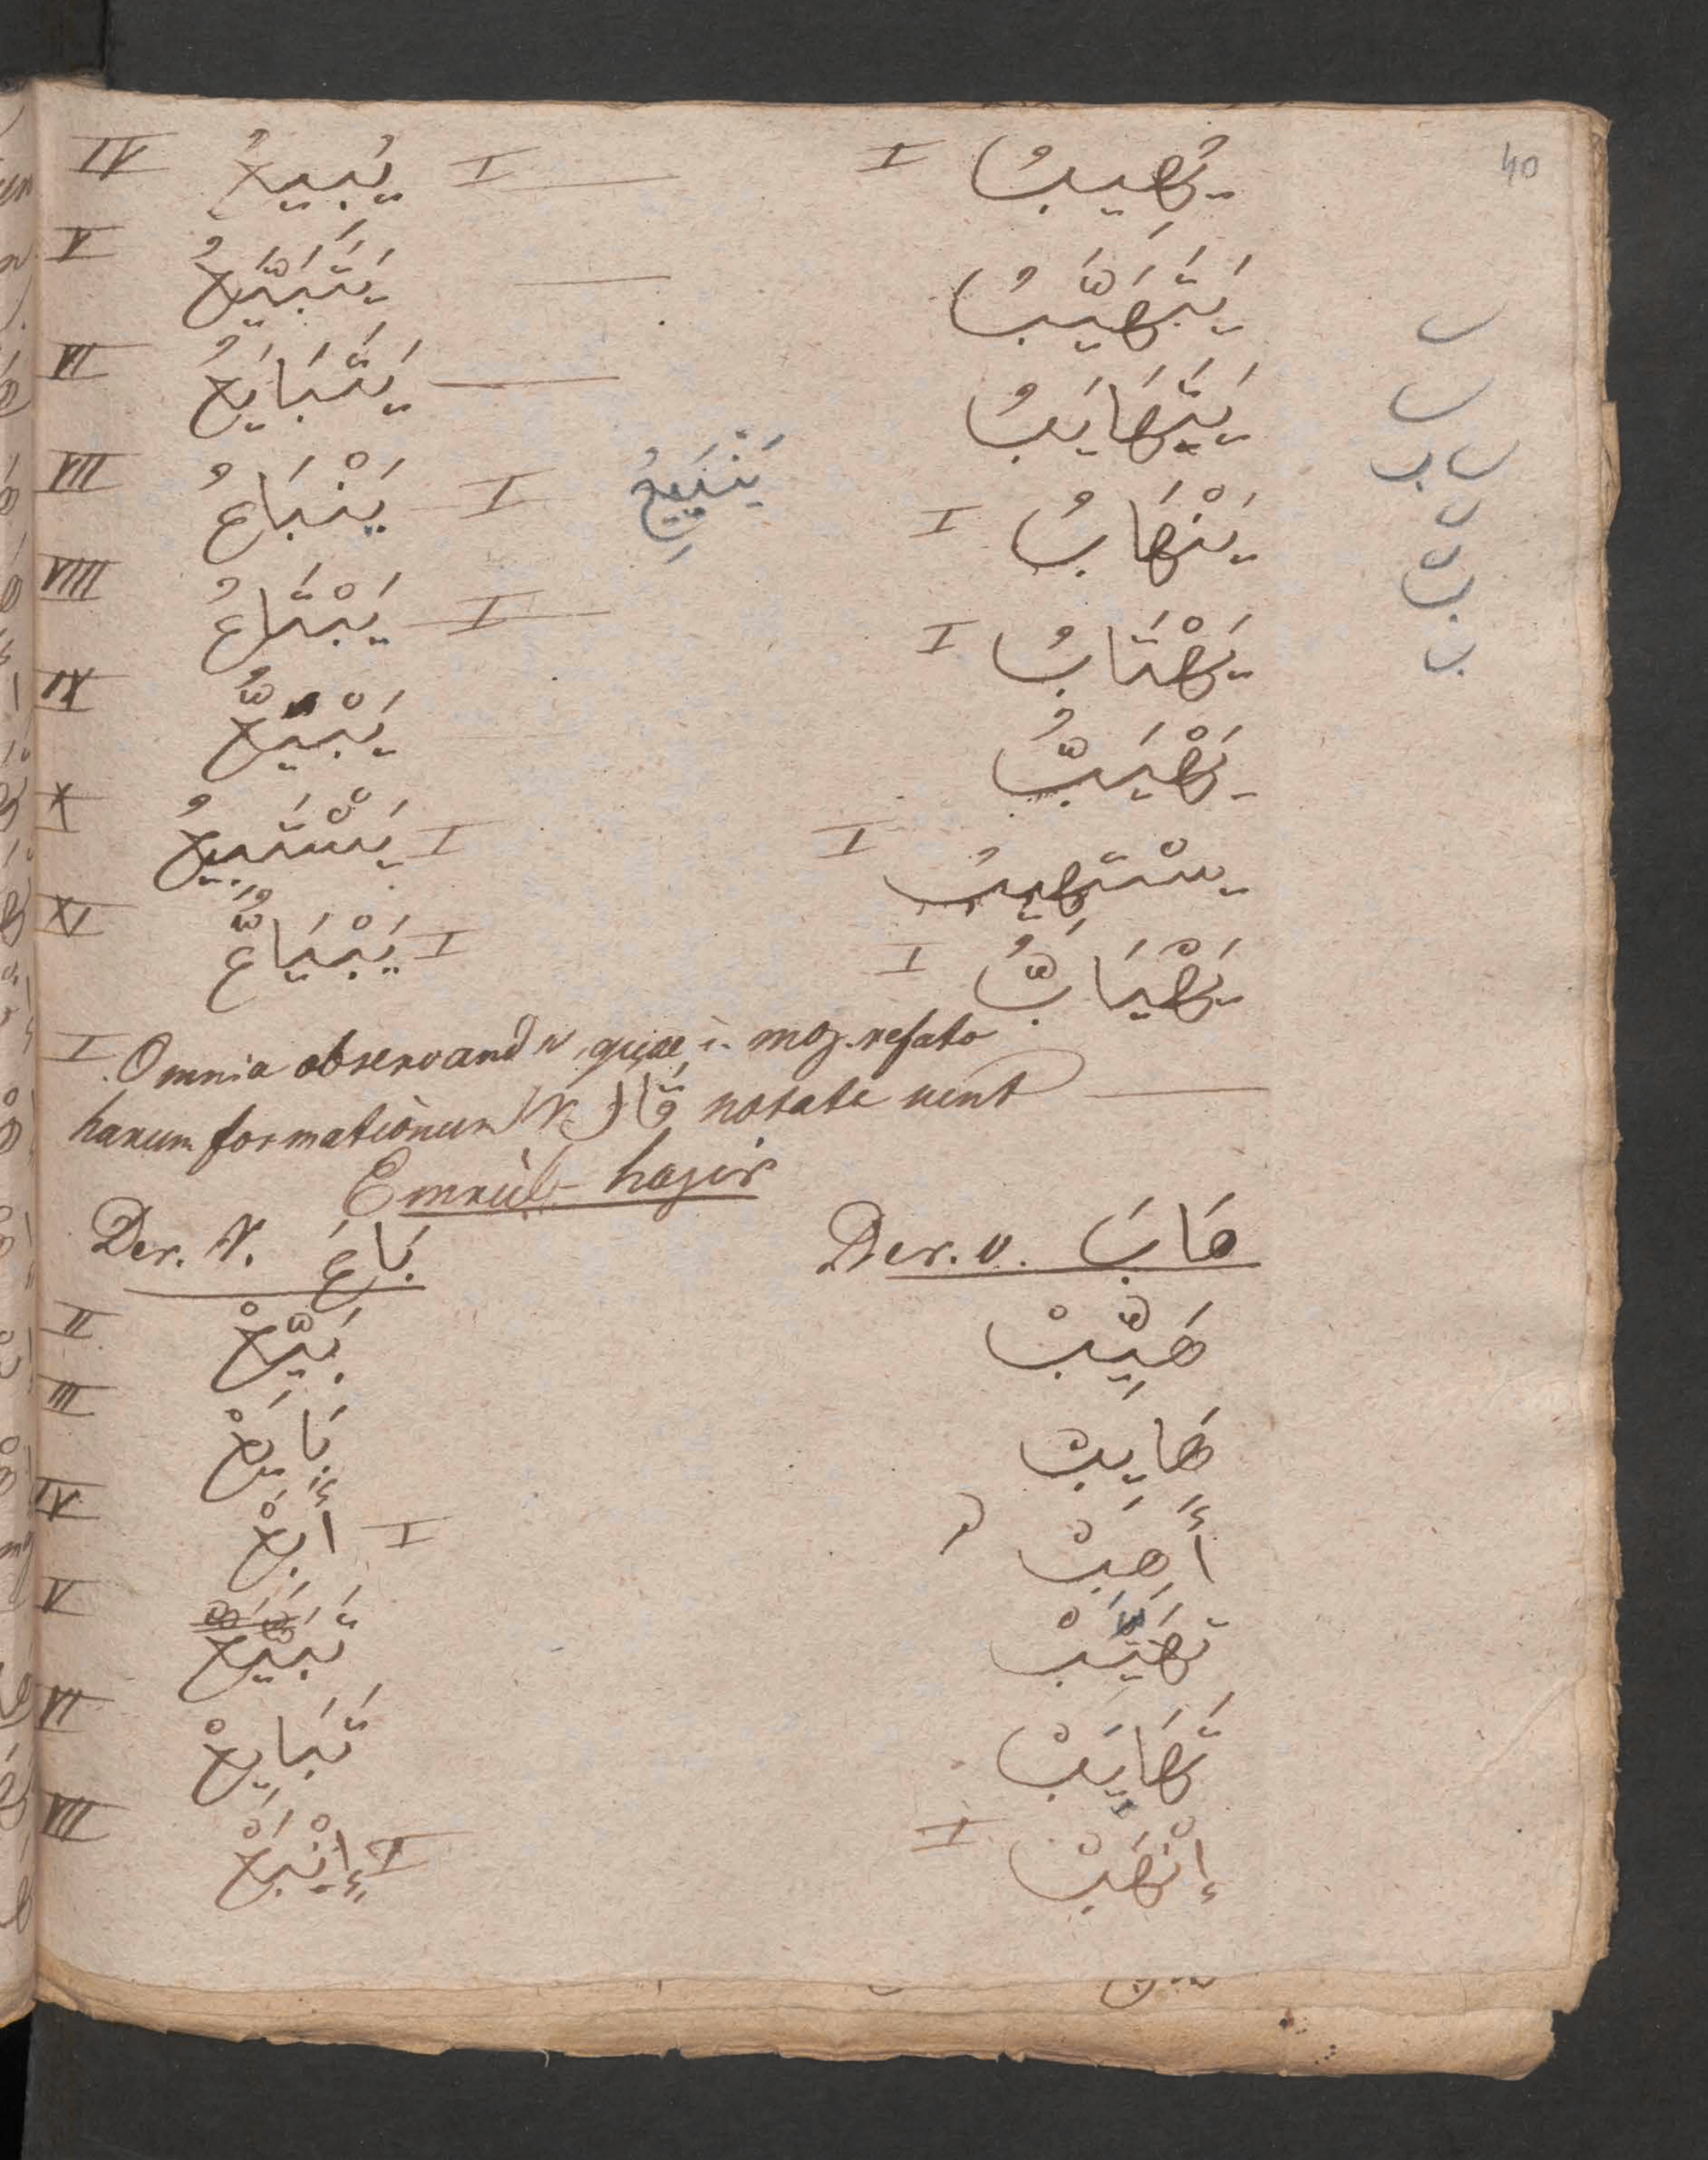 40
IV يُبِيعُ I يُهِيبُ I
V يَتَبَيَّعُ يَتَهَيَّبُ
VI يَتَبَايَعُ يَتَهَايَبُ
VII يَنْبَاعُ I يَنْبَيِعُ يَنْهَابُ I
VIII يَبْتَاعُ I يَهْتَابُ I
IX يَبْيَعُّ يَهْيَبُّ
X يَسْتَبِيعُ I يسْتهِيبُ I
XI يَبْيَاعُّ I يَهْيَابُّ I
I Omnia observand quae i. moz. refato
harum formationum V. قَالَ notata vent
Emrül-hazir
Der. V. بَاعَ Der. v. هَابَ
II بَيِّعْ هَيِّبْ
III بَايِعْ هَايِبْ
IV أَبِعْ I أَهِبْ
V تَبَيَّعْ تَهَيَّبْ
VI تَبَايَعْ تَهَايَبْ
VII إِنْبَعْ I إنْهَبْ I